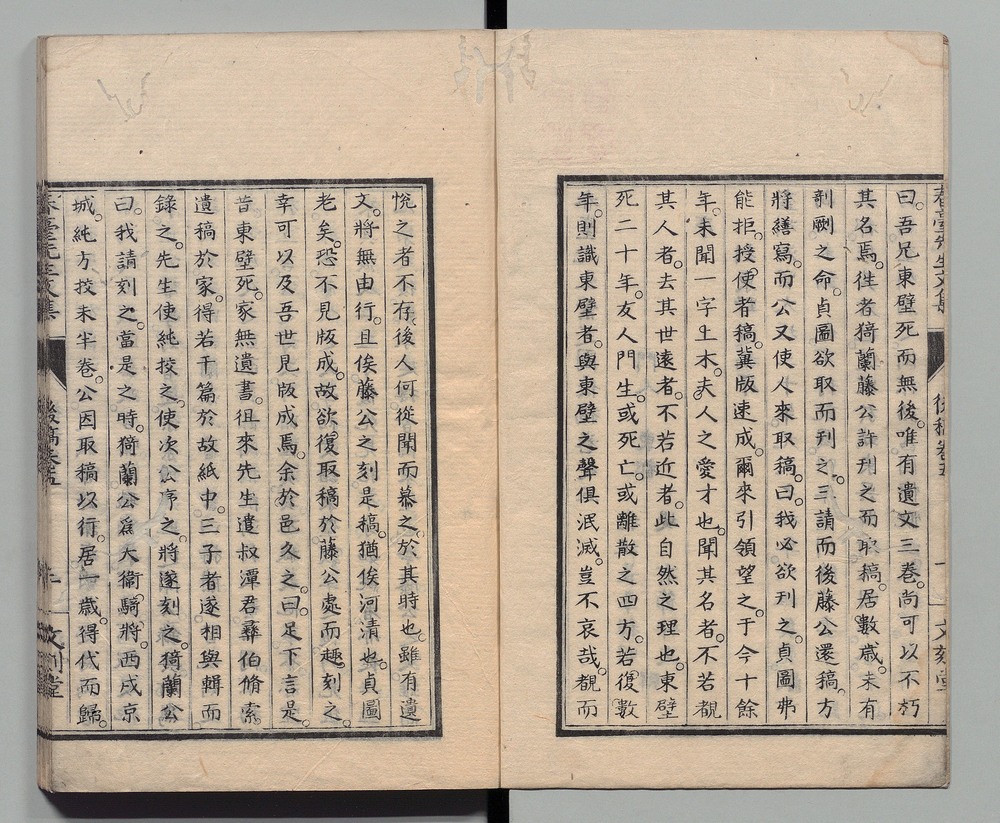 曰。吾兄東壁死而無後。唯有遺文三卷。尚可以不朽
其名焉。徃者猗蘭藤公許刋之而取稿。居數歲。未有
剞劂之命。貞圖欲取而刋之。三請而後藤公還稿。方
將繕寫。而公又使人來取稿。曰。我必欲刋之。貞圖弗
能拒。授使者稿。冀版速成。爾來引領望之。于今十餘
年。未聞一字上木。夫人之愛才也。聞其名者。不若覩
其人者。去其世遠者。不若近者。此自然之理也。東壁
死二十年。友人門生。或死亡。或離散之四方。若復數
年。則識東壁者。與東壁之聲俱泯滅。豈不哀哉。覩而
悅之者不存。後人何從聞而慕之。於其時也。雖有遺
文。將無由行。且俟藤公之刻是稿。猶俟河清也。貞圖
老矣。恐不見版成。故欲復取稿於藤公處而趣刻之。
幸可以及吾世見版成焉。余於邑久之。曰。足下言是。
昔東壁死。家無遺書。徂來先生遣叔潭君彝伯脩索
遺稿於家。得若干篇於故紙中。三子者遂相與輯而
錄之。先生使純挍之。使次公序之。將遂刻之。猗蘭公
曰。我請刻之。當是之時。猗蘭公爲大衞騎將。西戍京
城。純方挍未半卷。公因取稿以行。居一歲。得代而歸。
春臺先生文集
後稿卷五
文刻堂